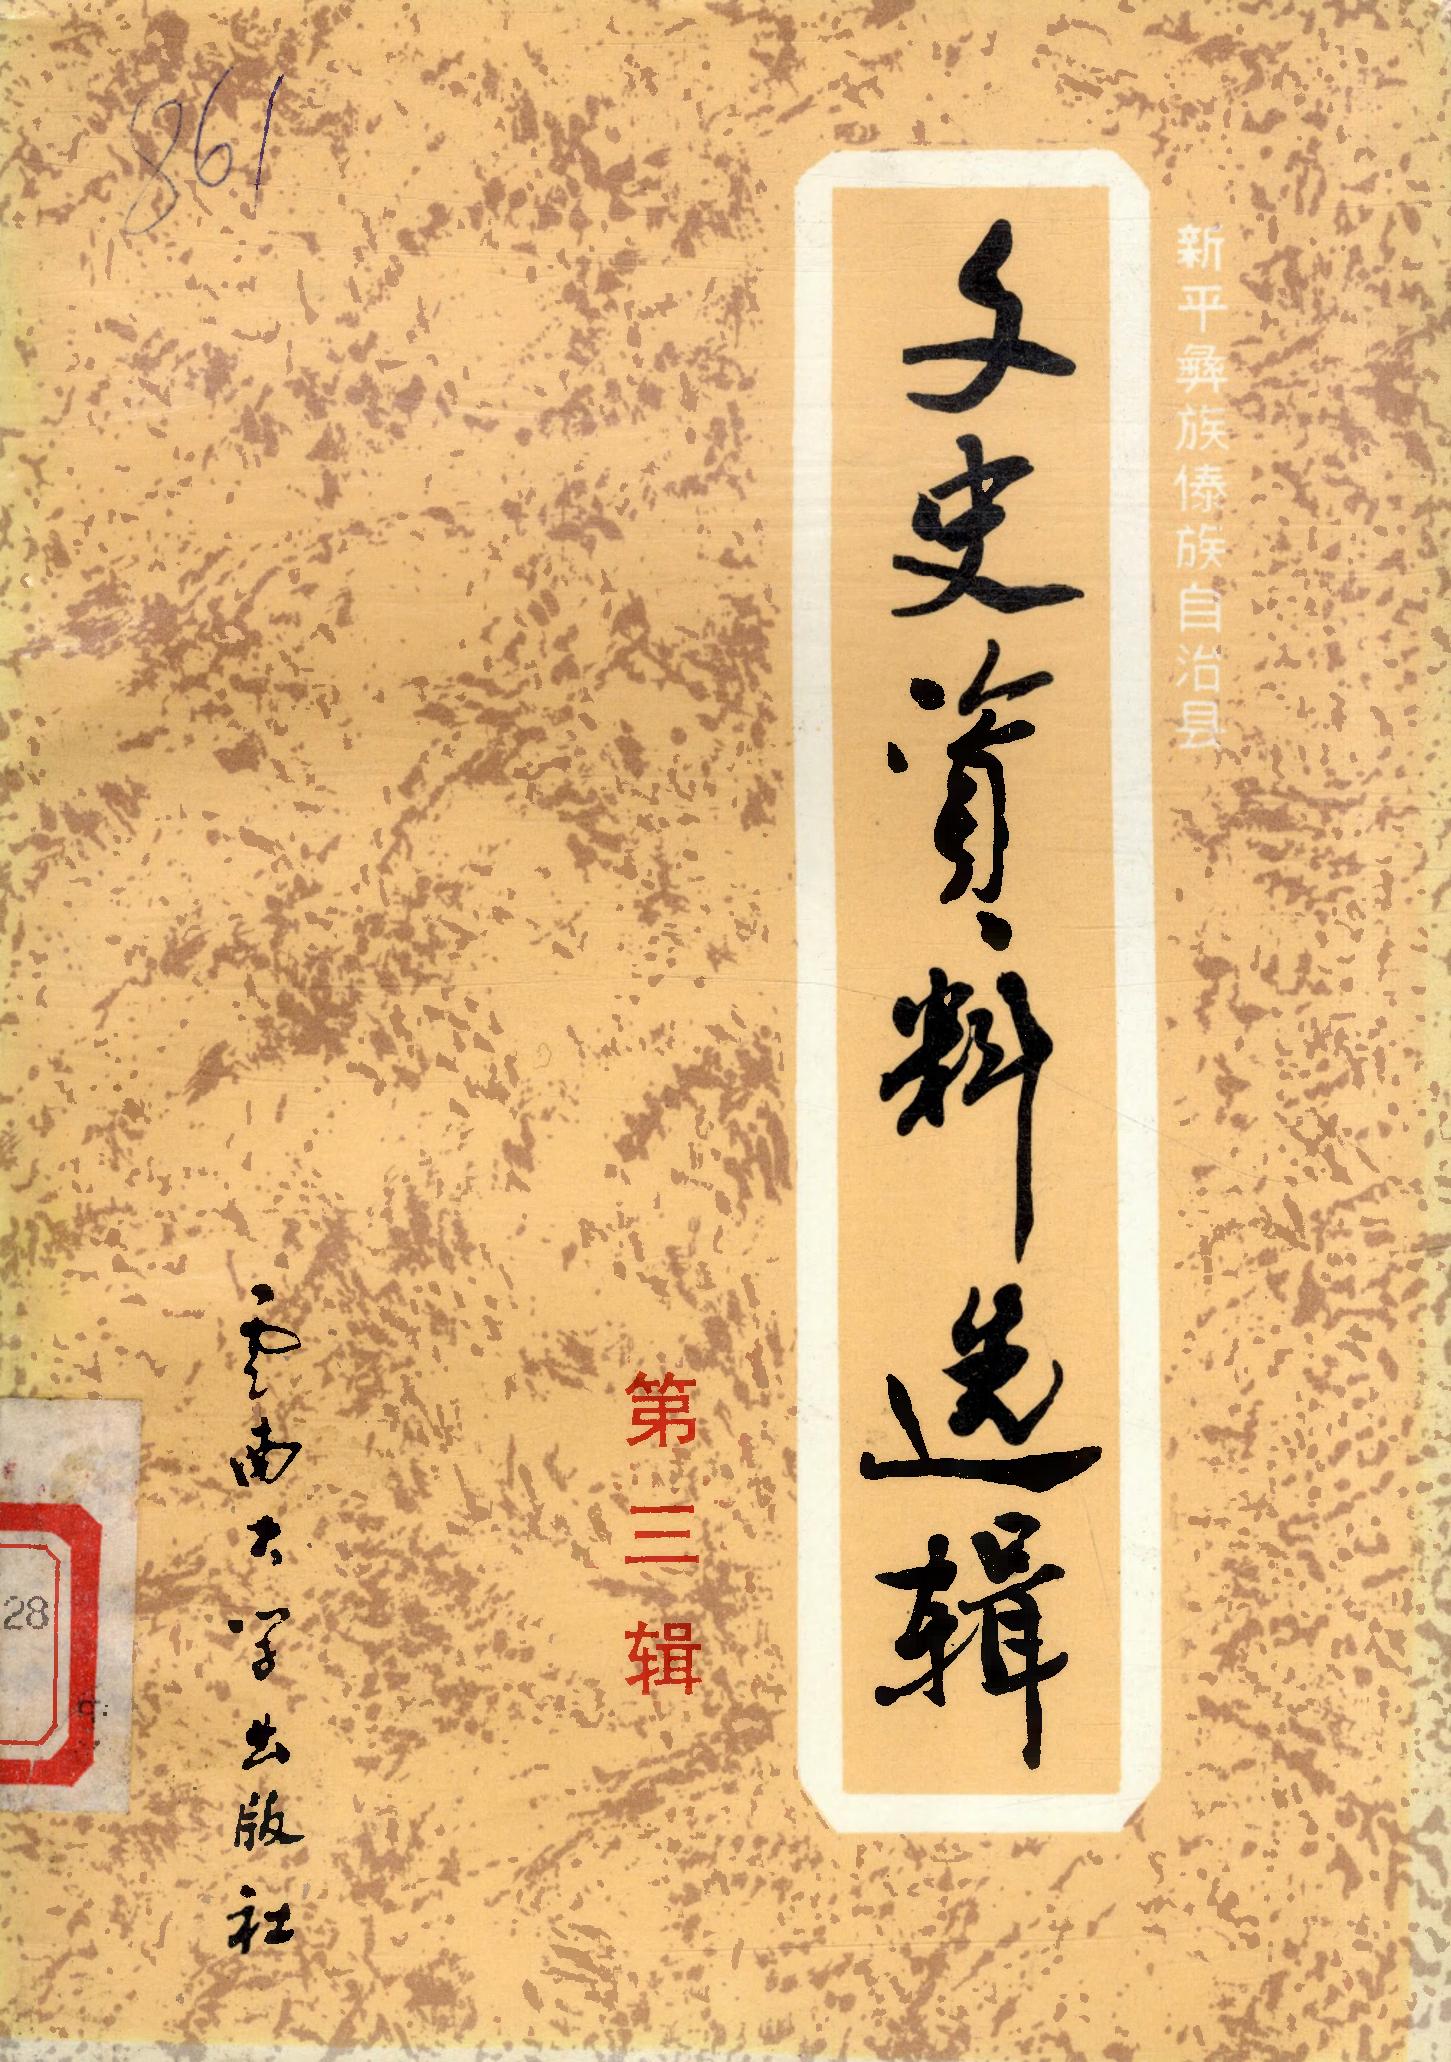 新平彝族傣族自治县
文史资料选辑
第三辑
云南大学出版社
861
28